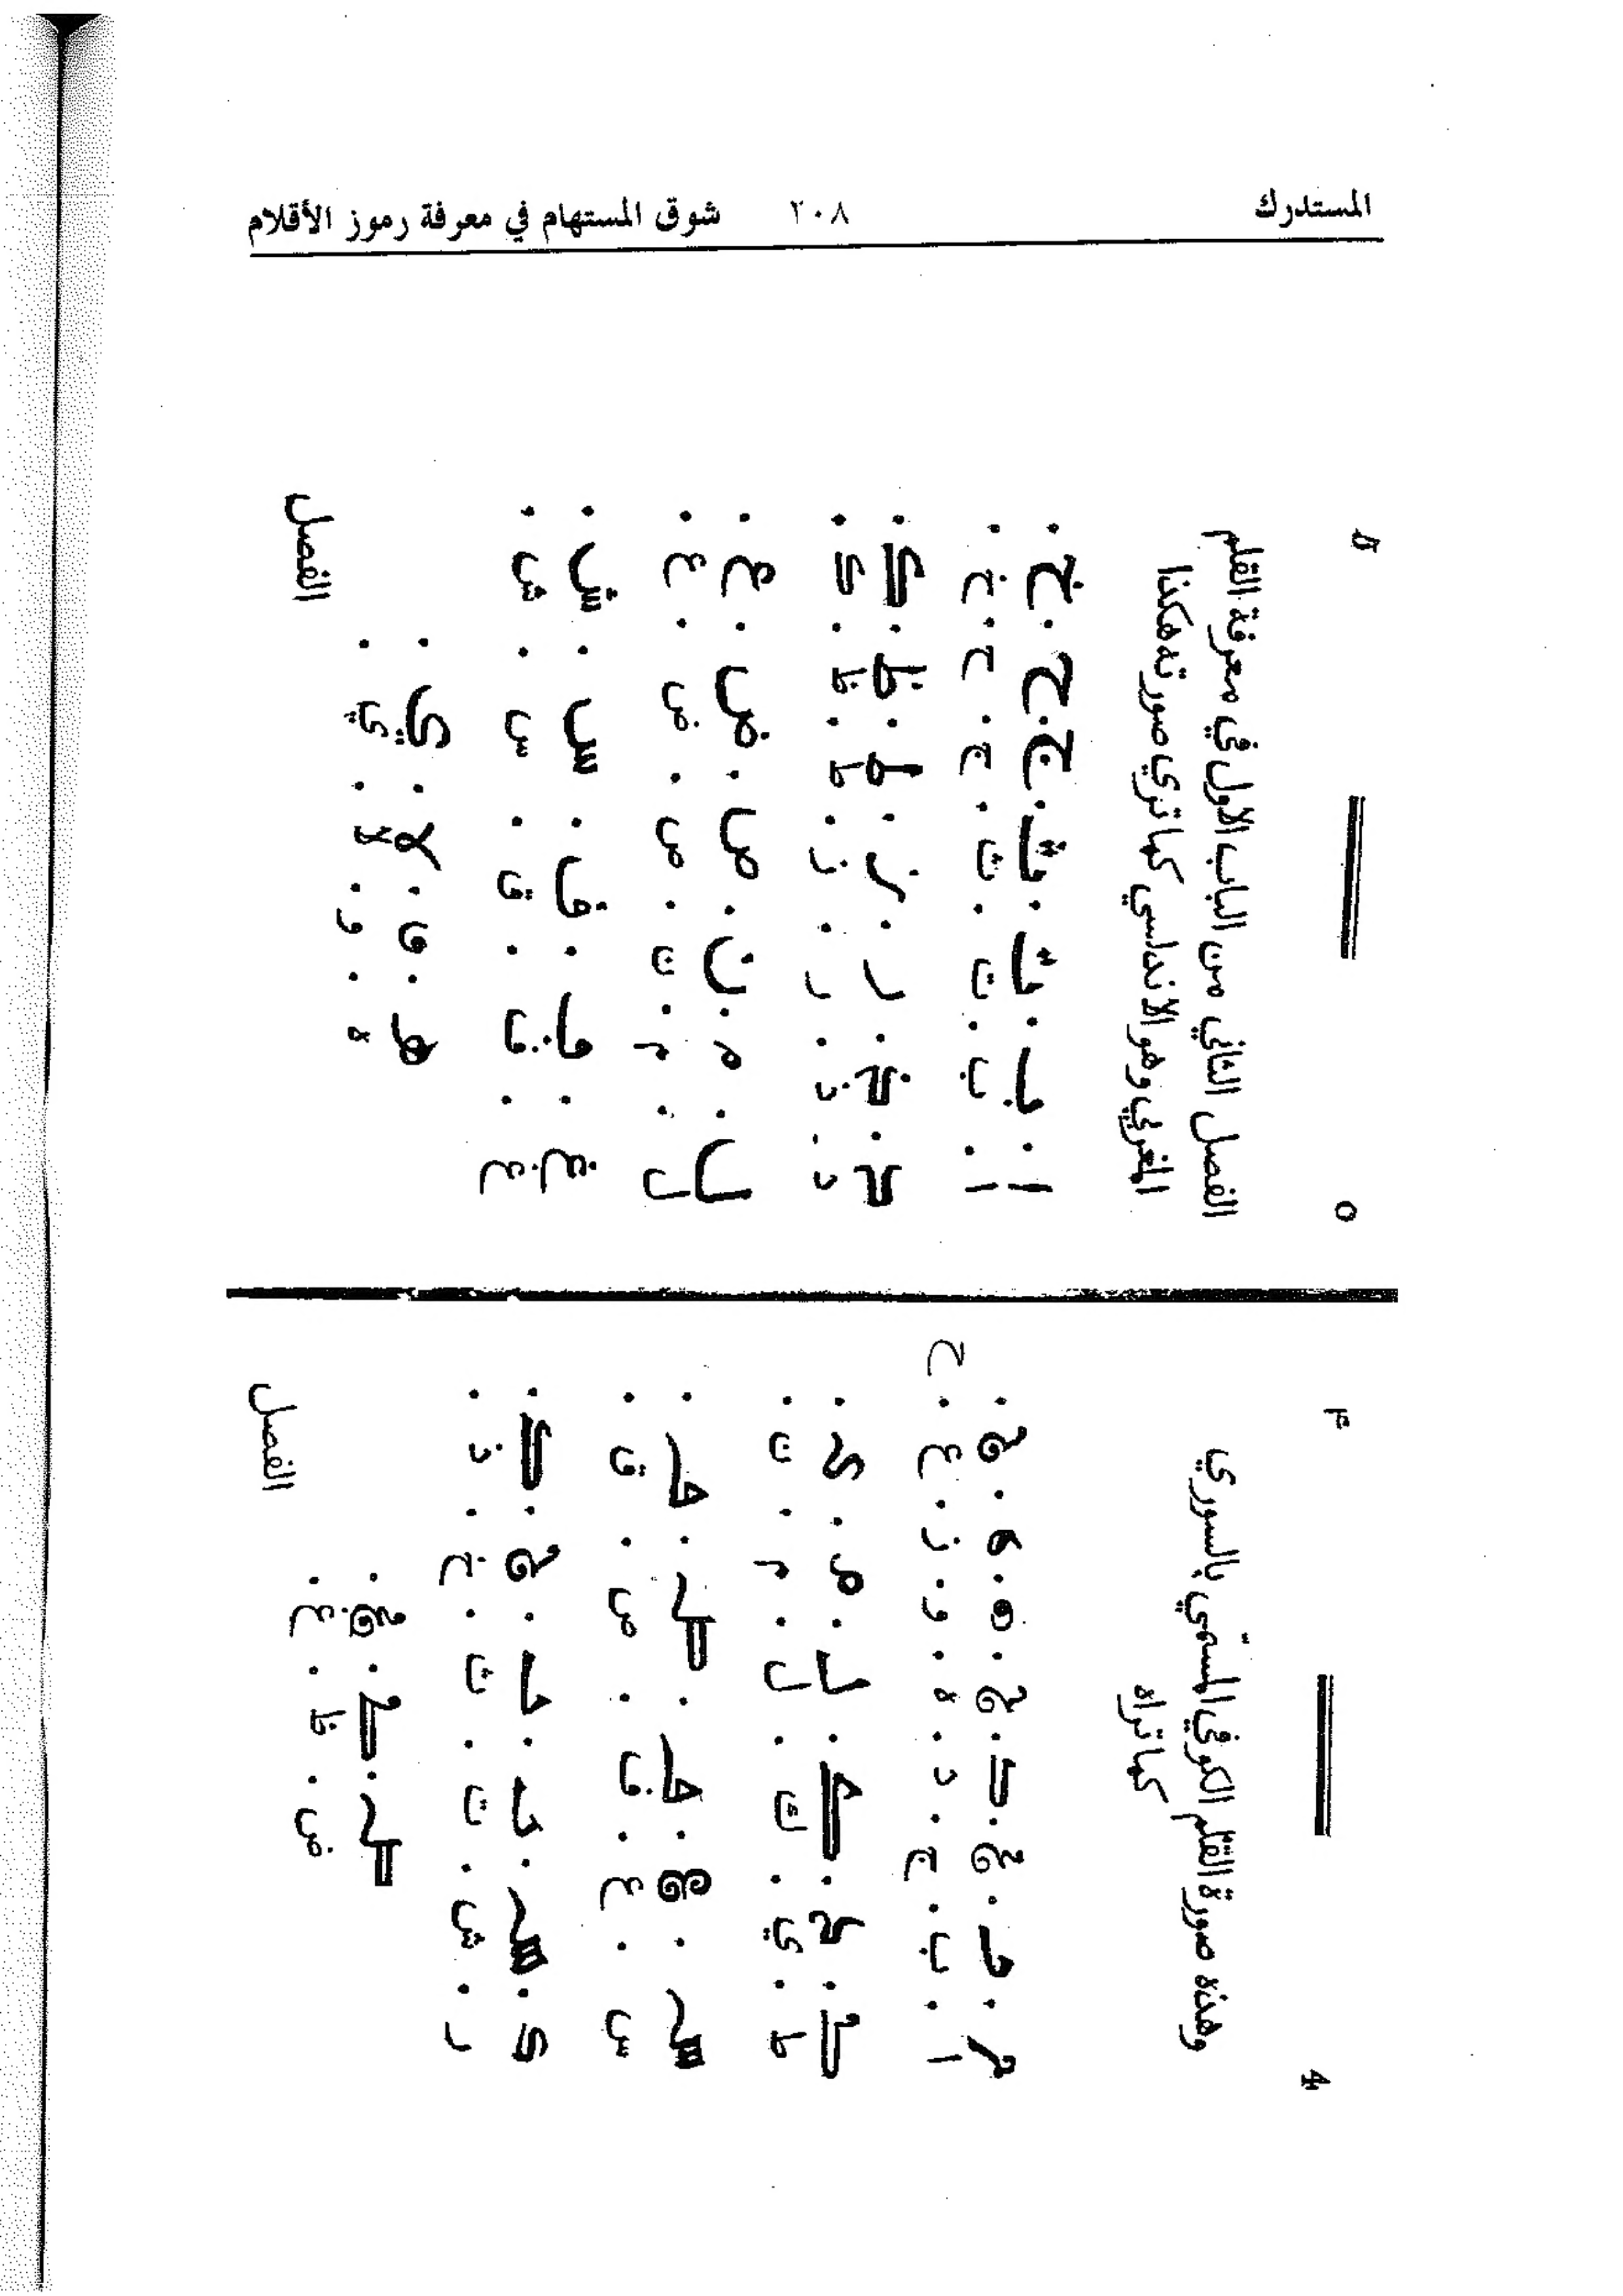 المستدرك ٢٠٨ شوق المستهام في معرفة رموز الأقلام
4
وهذه صورة القلم الكوفي المسمّي بالسوري
كما تراه
ا . ب . ج . د . ه . و . ز . ع . ح
ط . ي . ك . ل . م . ن .
س . ع . ف . ص . ق .
ر . ش . ت . ث . خ . ذ .
ض . ظ . غ .
الفصل
٥
الفصل الثاني من الباب الاول في معرفة القلم
المغربي وهو الاندلسي كما تري صورته هكذا
ا . ب . ت . ث . ج . ح . خ .
ا . ب . ت . ث . ج . ح . خ .
د . ذ . ر . ز . ط . ظ . ك .
د . ذ . ر . ز . ط . ظ . ك .
ل . م . ن . ص . ض . ع .
ل . م . ن . ص . ض . ع .
غ . ف . ق . س . ش .
غ . ف . ق . س . ش .
ه . و . لا . ي .
ه . و . لا . ي .
الفصل